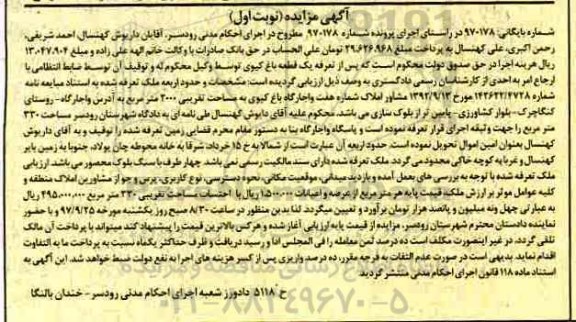 آگهی مزایده (نوبت اول)
شماره بایگانی: ۹۷۰۱۷۸ در راستای اجرای پرونده شماره ۹۷۰۱۷۸ مطروح در اجرای احکام مدنی رودسر، آقایان داریوش کهنسال، احمد شریفی،
رحمن اکبری، علی کهنسال به پرداخت مبلغ ۲۹،۶۲۶،۹۶۸ تومان علی الحساب در حق بانک صادرات با وکالت خانم الهه علی زاده و مبلغ ۱۳،۰۴۷،۹۰۴
ریال هزینه اجرا در حق صندوق دولت محکوم است که پس از تعرفه یک قطعه باغ کیوی توسط وکیل محکوم له و توقیف آن توسط ضابط انتظامی با
ارجاع امر به احدی از کارشناسان رسمی دادگستری به وصف ذیل ارزیابی گردیده است: مشخصات و حدود اربعه ملک تعرفه شده به استناد مبایعه نامه
شماره ۱۴۲۶۲۲/۴۷۲۸ مورخ ۱۳۹۲/۹/۱۳ مشاور املاک شماره هفت واجارگاه باغ کیوی به مساحت تقریبی ۲۰۰۰ متر مربع به آدرس واجارگاه- روستای
کنگاچرک- بلوار کشاورزی- پایین تر از بلوک سازی می باشد. محکوم علیه آقای داریوش کهنسال طی نامه ای به دادگاه شهرستان رودسر مساحت ۳۳۰
متر مربع را جهت وثیقه اجرای قرار تعرفه نموده است و پاسگاه واجارگاه بنا به دستور مقام محترم قضایی زمین تعرفه شده را توقیف و به آقای داریوش
کهنسال بعنوان امین اموال تحویل نموده است. حدود اربعه آن عبارت است از شمالا به خ ۱۵ خرداد، شرقا به خانه محوطه چان پولاد، جنوبا به زمین بایر
کهنسال و غربا به کوچه خاکی محدود می گردد. ملک تعرفه شده دارای سند مالکیت رسمی نمی باشد. چهار طرف با سنگ بلوک محصور می باشد. ارزیابی
ملک تعرفه شده با توجه به بررسی های بعمل آمده و بازدید میدانی، موقعیت مکانی، نحوه دسترسی، نوع کاربری، پرس و جو از مشاورین املاک منطقه و
کلیه عوامل موثر بر ارزش ملک، قیمت پایه هر متر مربع از عرصه و اعیانات ۱،۵۰۰،۰۰۰ ریال با احتساب مساحت تقریبی ۳۳۰ متر مربع ۴۹۵،۰۰۰،۰۰۰ ریال
به عبارتی چهل ونه میلیون و پانصد هزار تومان برآورد و تعیین میگردد. لذا بدین منظور در ساعت ۸/۳۰ صبح روز یکشنبه مورخه ۹۷/۹/۲۵ و با حضور
نماینده دادستان محترم شهرستان رودسر، مزایده از قیمت پایه ارزیابی آغاز شده و هرکس بالاترین قیمت را پیشنهاد کند میتواند با پرداخت آن مالک
تلقی گردد. در غیر اینصورت مکلف است ده درصد ثمن معامله را فی المجلس ادا و رسید دریافت و ظرف حداکثر یکماه نسبت به پرداخت ما به التفاوت
اقدام نماید. بدیهی است در صورت عدم التفات به فرجه مقرر، ده درصد واریزی پس از کسر هزینه های اجرا به نفع دولت ضبط خواهد شد. این آگهی به
استناد ماده ۱۱۸ قانون اجرای احکام مدنی منتشر گردید.
خ ۵۱۱۸ دادورز شعبه اجرای احکام مدنی رودسر- خندان بالنگا
۰۲۱-۸۸۳۴۹۶۷۰-۵